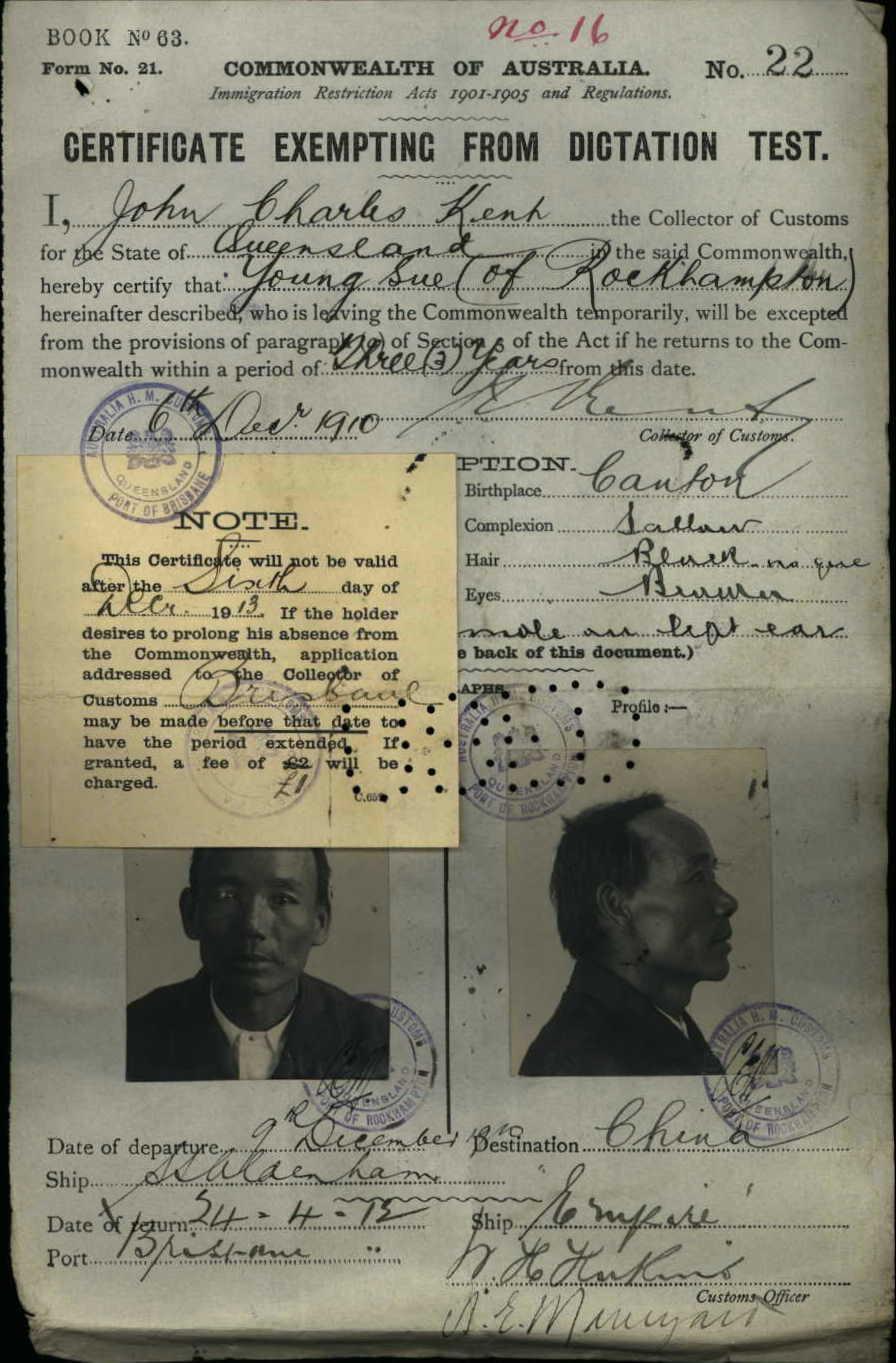 BOOK Nº 63.
no. 16
Form No. 21.
COMMONWEALTH OF AUSTRALIA.
No. 22
Immigration Restriction Acts 1901-1905 and Regulations.
CERTIFICATE EXEMPTING FROM DICTATION TEST.
I, John Charles Kent the Collector of Customs
for the State of Queensland in the said Commonwealth,
hereby certify that Young Sue (of Rockhampton)
hereinafter described, who is leaving the Commonwealth temporarily, will be excepted
from the provisions of paragraph (a) of Section 3 of the Act if he returns to the Com-
monwealth within a period of three (3) Years from this date.
Date 6th Decr. 1910
Collector of Customs.
AUSTRALIA H. M. CUSTOMS
QUEENSLAND
PORT OF BRISBANE
NOTE.
This Certificate will not be valid
after the Sixth day of
Decr. 1913. If the holder
desires to prolong his absence from
the Commonwealth, application
addressed to the Collector of
Customs Brisbane
may be made before that date to
have the period extended. If
granted, a fee of £2 will be
£1
charged.
PTION.
Birthplace Canton
Complexion Sallow
Hair Black
Eyes Brown
mole on left ear
e back of this document.)
APHS.
Profile :—
QUEENSLAND
PORT OF ROCKHAMPTON
CUSTOMS
QUEENSLAND
PORT OF ROCKHAMPTON
AUSTRALIA H. M. CUSTOMS
QUEENSLAND
PORT OF ROCKHAMPTON
Date of departure 9th December 1910
Destination China
Ship SS Aldenham
Date of return 24-4-12
Ship Empire
Port Brisbane
Customs Officer